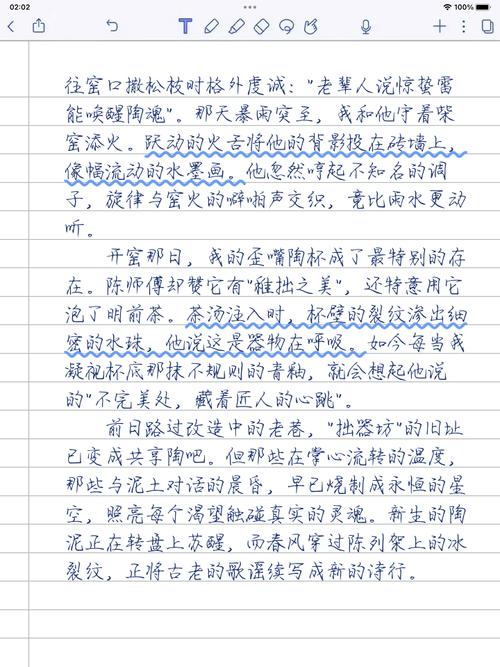 02:02
100%
往窑口撒松枝时格外虔诚："老辈人说惊蛰雷
能唤醒陶魂"。那天暴雨突至，我和他守着柴
窑添火。跃动的火舌将他的背影投在砖墙上，
像幅流动的水墨画。他忽然哼起不知名的调
子，旋律与窑火的噼啪声交织，竟比雨水更动
听。
开窑那日，我的歪嘴陶杯成了最特别的存
在。陈师傅却赞它有"稚拙之美"，还特意用它
泡了明前茶。茶汤注入时，杯壁的裂纹渗出细
密的水珠，他说这是器物在呼吸。如今每当我
凝视杯底那抹不规则的青釉，就会想起他说
的"不完美处，藏着匠人的心跳"。
前日路过改造中的老巷，"拙器坊"的旧址
已变成共享陶吧。但那些在掌心流转的温度，
那些与泥土对话的晨昏，早已烧制成永恒的星
空，照亮每个渴望触碰真实的灵魂。新生的陶
泥正在转盘上苏醒，而春风穿过陈列架上的冰
裂纹，正将古老的歌谣续写成新的诗行。